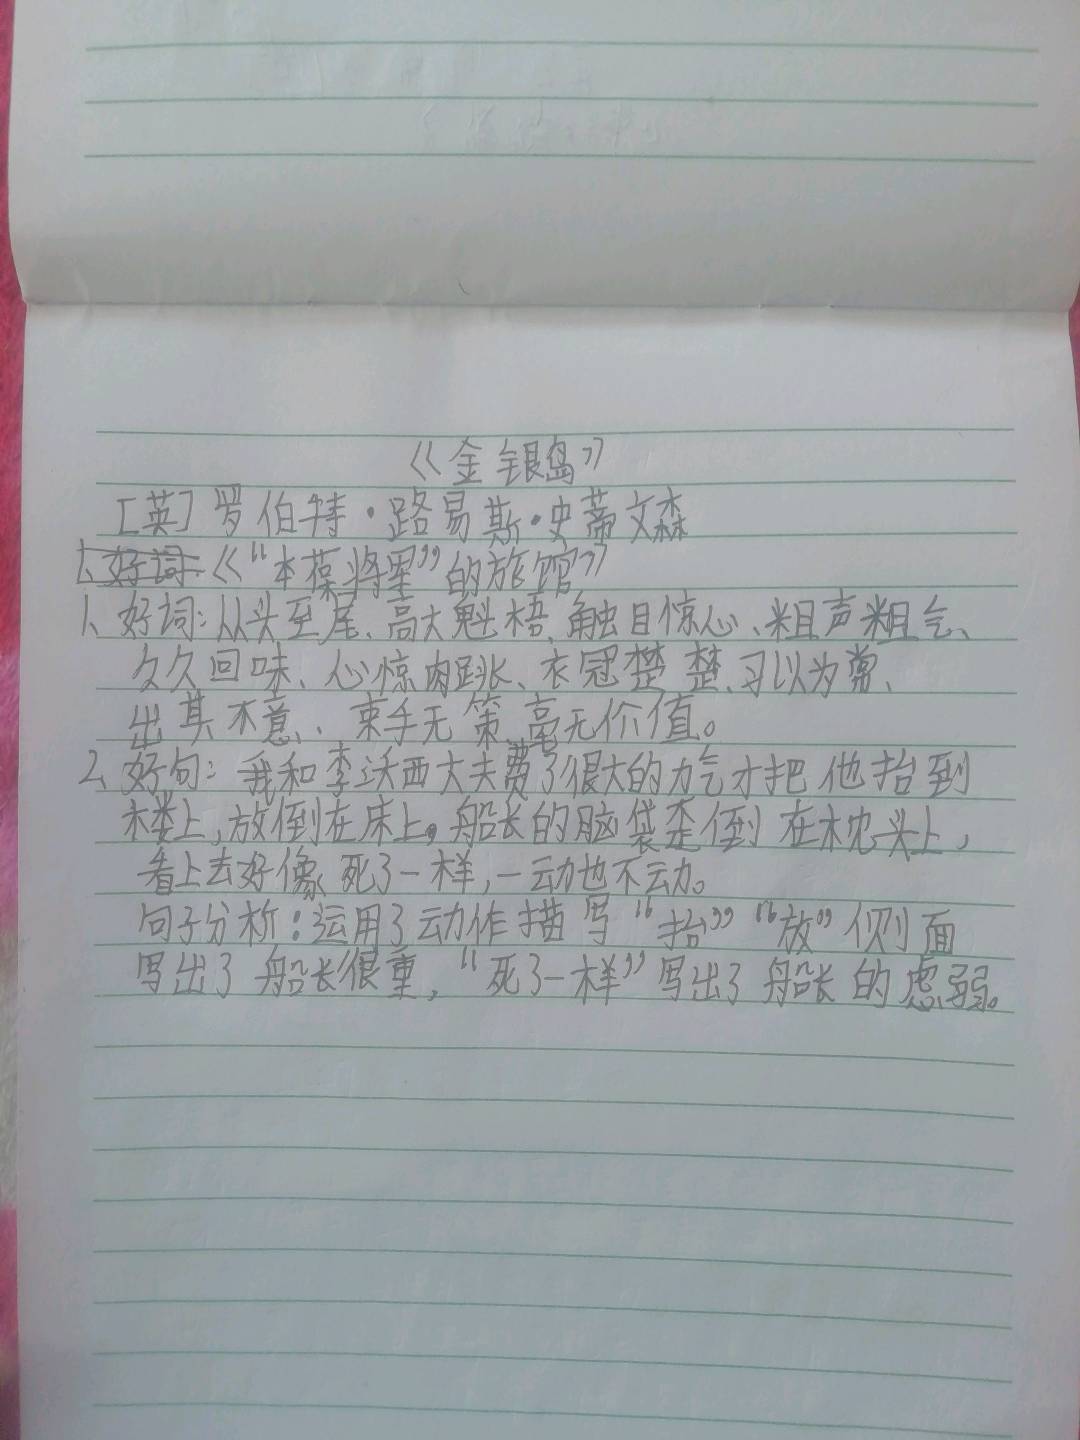 《金银岛》
[英]罗伯特·路易斯·史蒂文森
1、好词:《“本葆将军”的旅馆》
1、好词:从头至尾、高大魁梧、触目惊心、粗声粗气、
久久回味、心惊肉跳、衣冠楚楚、习以为常、
出其不意、束手无策、毫无价值。
2、好句:我和李沃西大夫费了很大的力气才把他抬到
楼上,放倒在床上。船长的脑袋歪倒在枕头上,
看上去好像死了一样,一动也不动。
句子分析:运用了动作描写“抬”“放”侧面
写出了船长很重,“死了一样”写出了船长的虚弱。